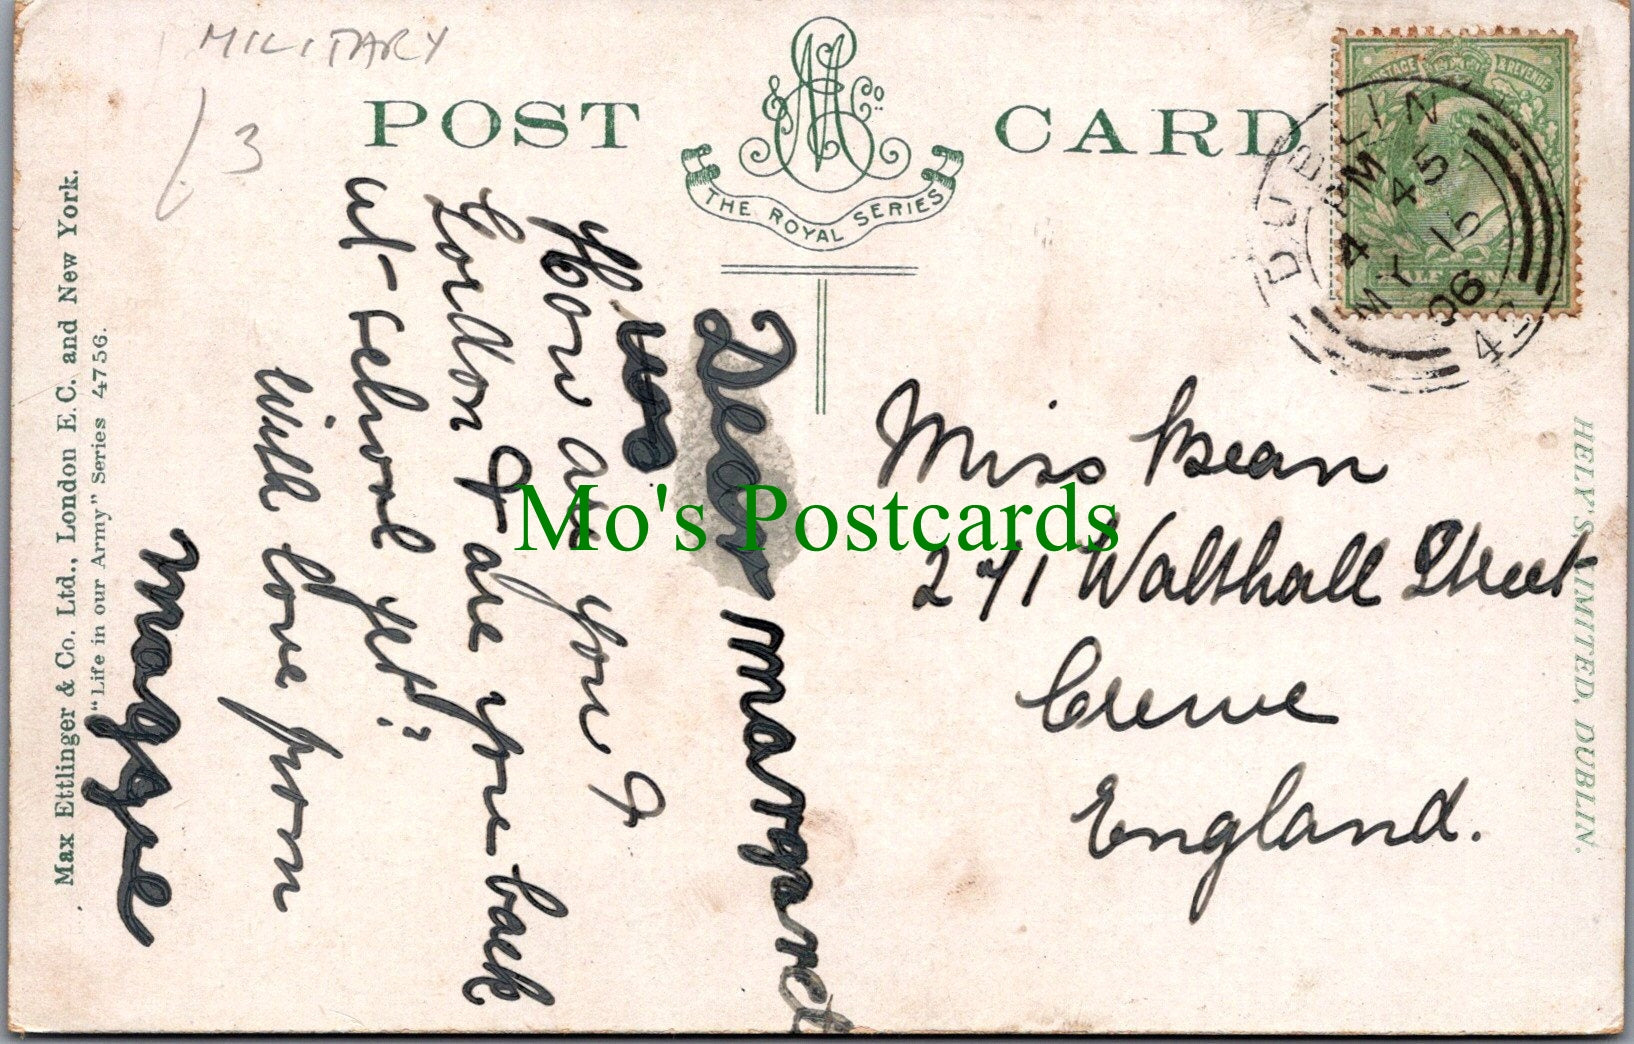 MILITARY
/3
POST CARD
M E & Co.
THE ROYAL SERIES
DUBLIN
4 45 PM
MY 15
06
43
POSTAGE & REVENUE
HALF PENNY
Miss Bean
271 Walthall Street
Crewe
England.
Dear Margaret
How are you &
Gordon & are you back
at school yet?
With love from
Maggie
Max Ettlinger & Co. Ltd., London E.C. and New York.
"Life in our Army" Series 4756.
HELY'S, LIMITED, DUBLIN.
Mo's Postcards